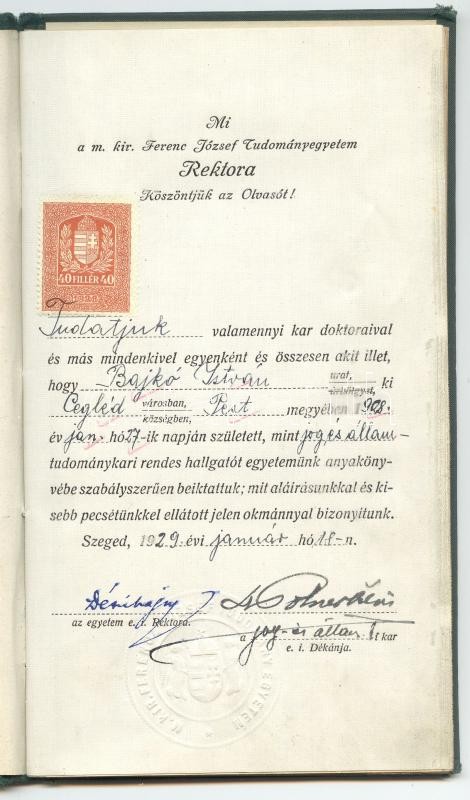 Mi
a m. kir. Ferenc József Tudományegyetem
Rektora
Köszöntjük az Olvasót!
40 FILLÉR 40
Tudatjuk valamennyi kar doktoraival
és más mindenkivel egyenként és összesen akit illet,
hogy Bajkó István urat, úrhölgyet, ki
Cegléd városban, községben, Pest megyében 1908.
év jan. hó 27-ik napján született, mint jog és állam-
tudománykari rendes hallgatót egyetemünk anyaköny-
vébe szabályszerűen beiktattuk; mit aláírásunkkal és ki-
sebb pecsétünkkel ellátott jelen okmánnyal bizonyitunk.
Szeged, 1929. évi január hó 18-n.
az egyetem e. i. Rektora.
a jog- és állam t. kar
e. i. Dékánja.